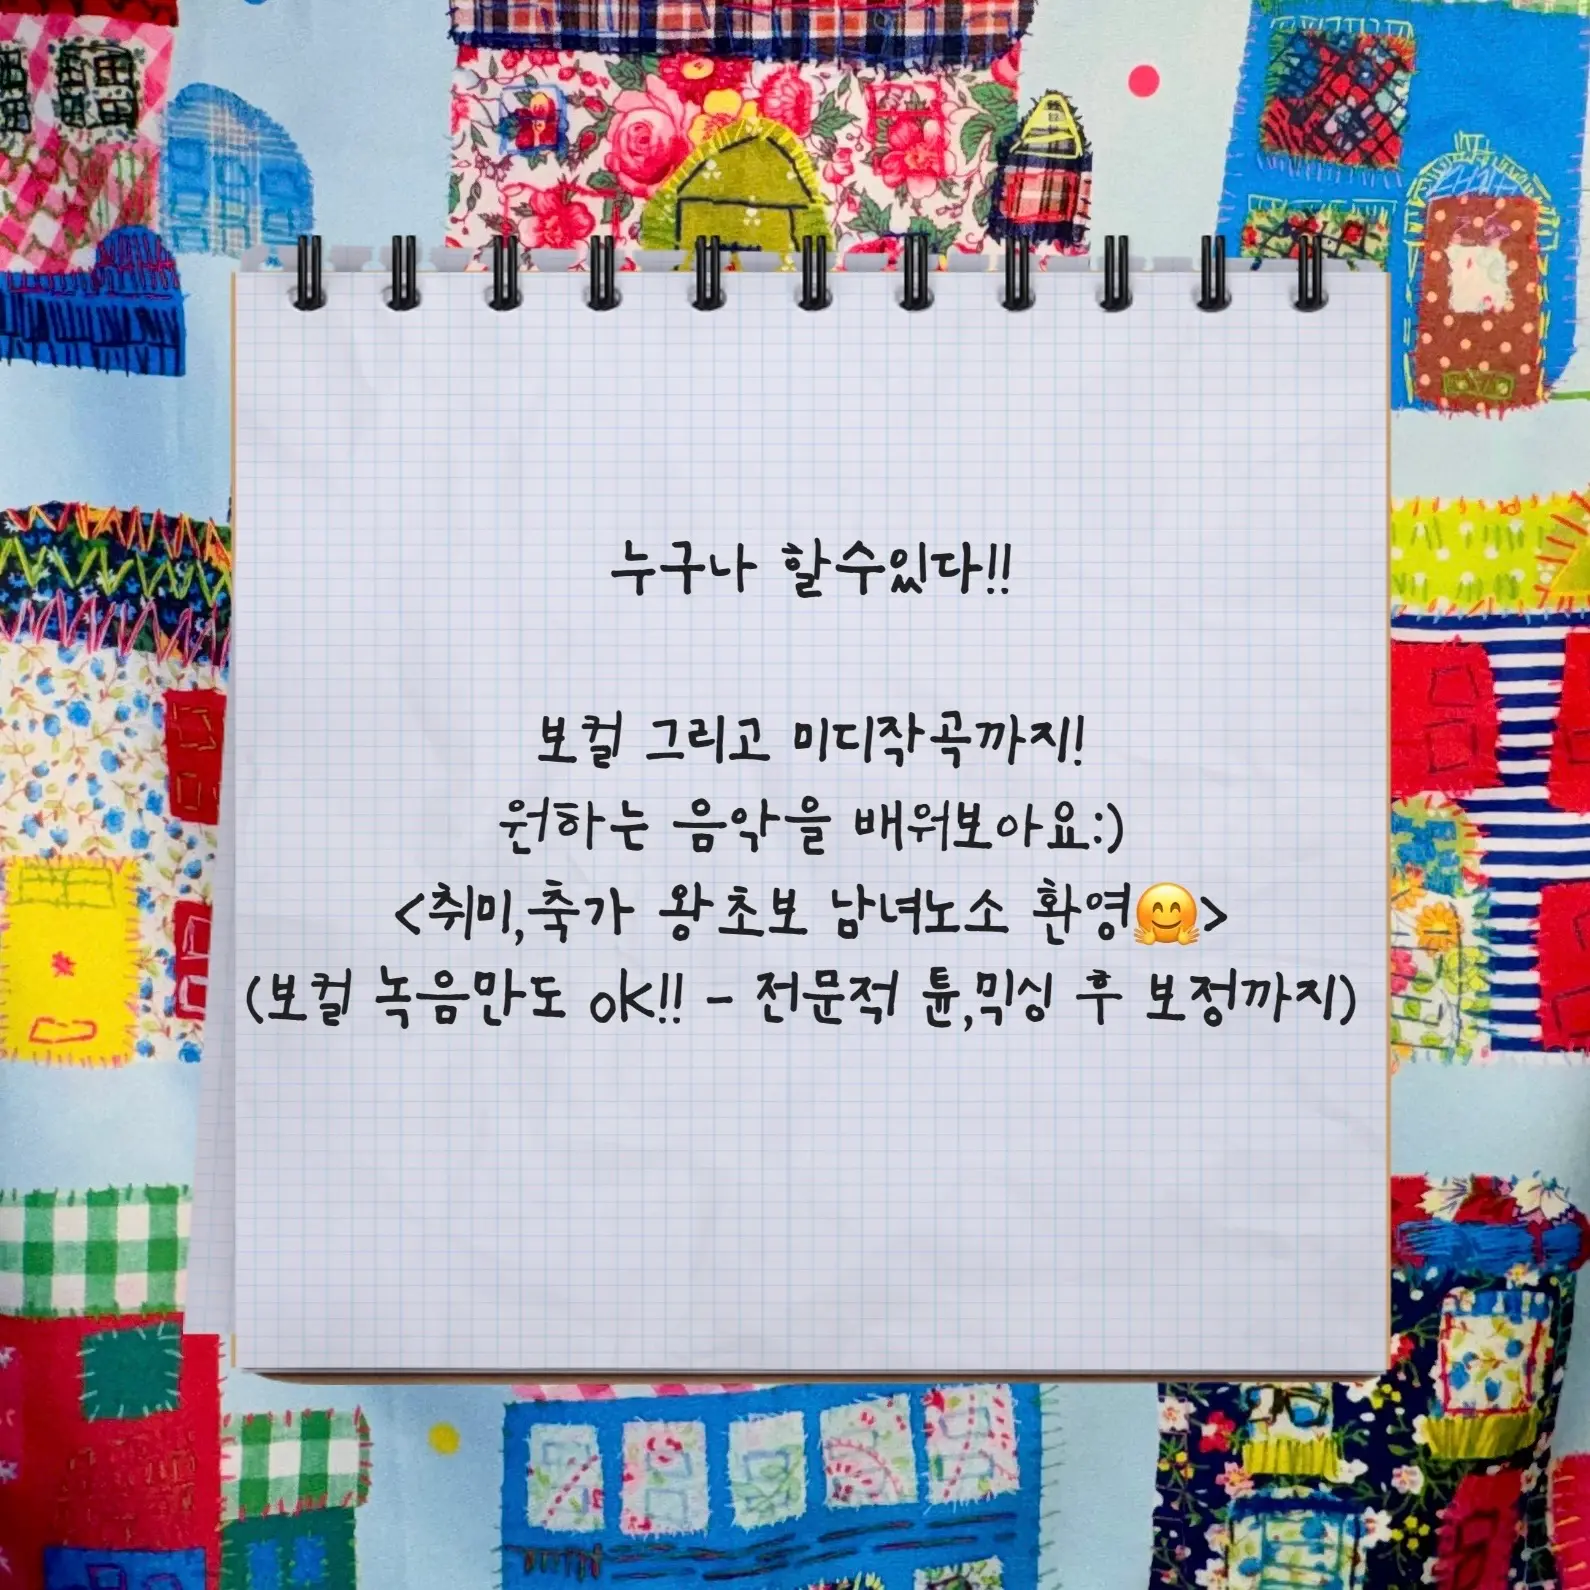 누구나 할수있다!!
보컬 그리고 미디작곡까지!
원하는 음악을 배워보아요:)
<취미,축가 왕초보 남녀노소 환영🤗>
(보컬 녹음만도 ok!! - 전문적 튠,믹싱 후 보정까지)